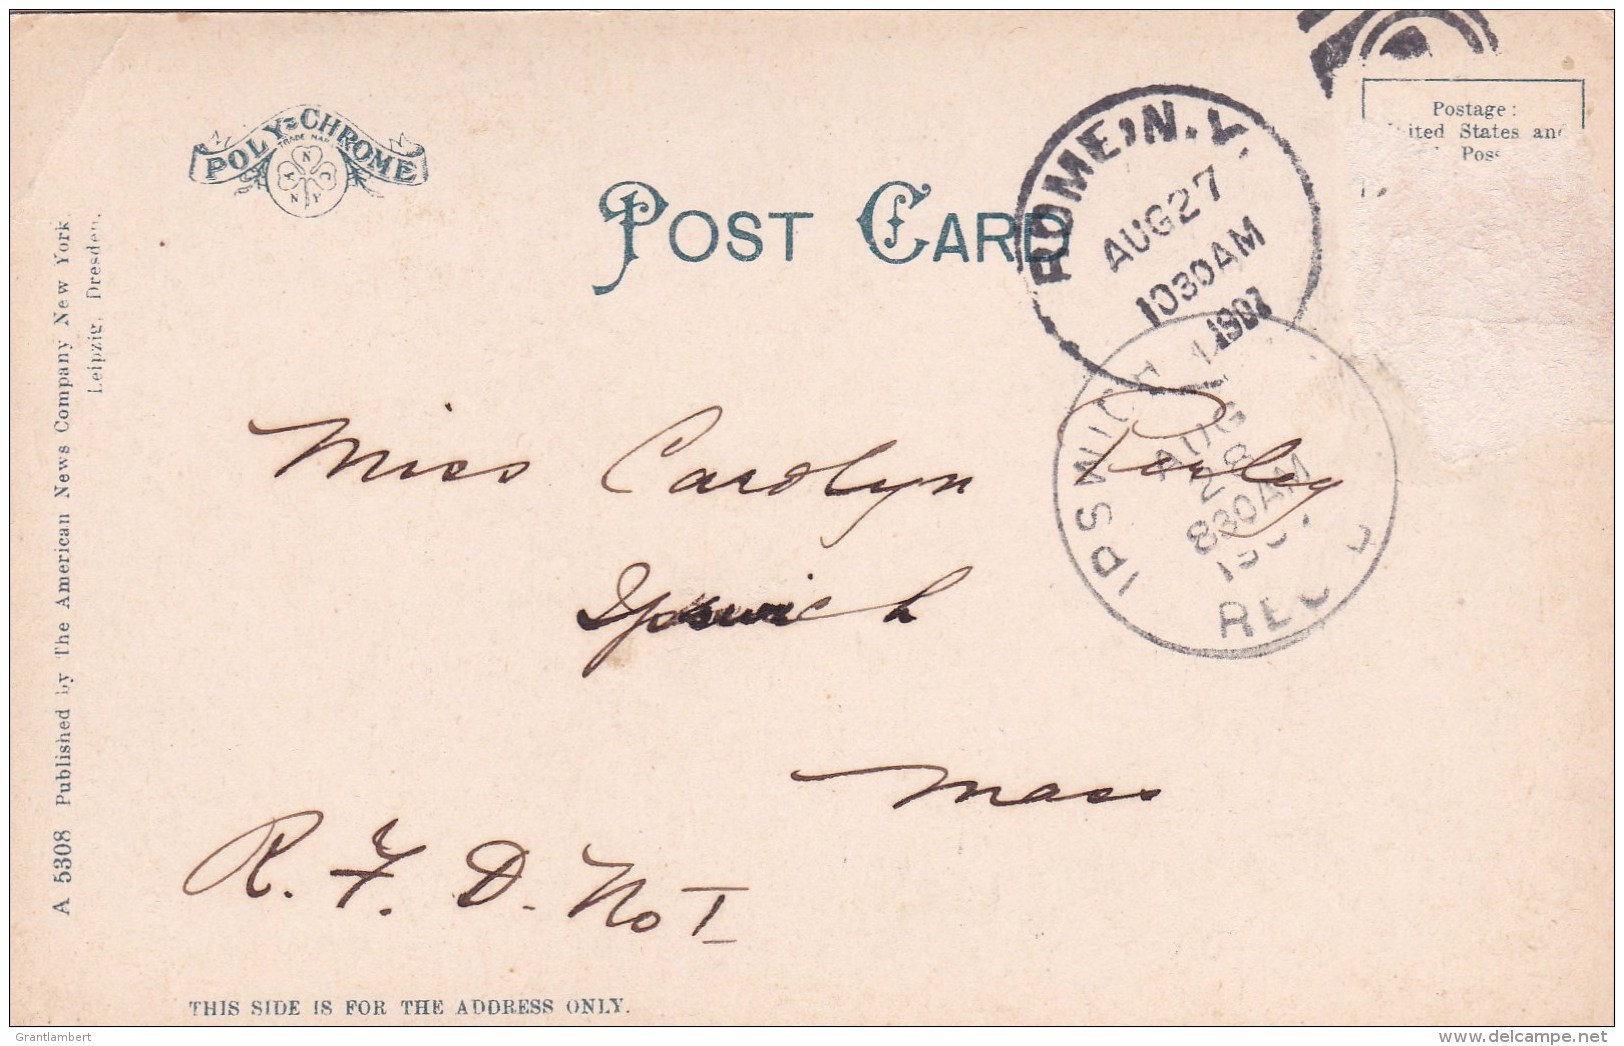 POLY-CHROME
TRADE MARK
A N C
N Y
POST CARD
ROME, N.Y.
AUG 27
1030 AM
1907
Postage:
ited States and
Poss
IPSWICH
AUG
28
830 AM
REC
Miss Carolyn
Ipswich
Mass
R. F. D. No I
A 5308 Published by The American News Company New York
Leipzig, Dresden.
THIS SIDE IS FOR THE ADDRESS ONLY.
Grantlambert
www.delcampe.net